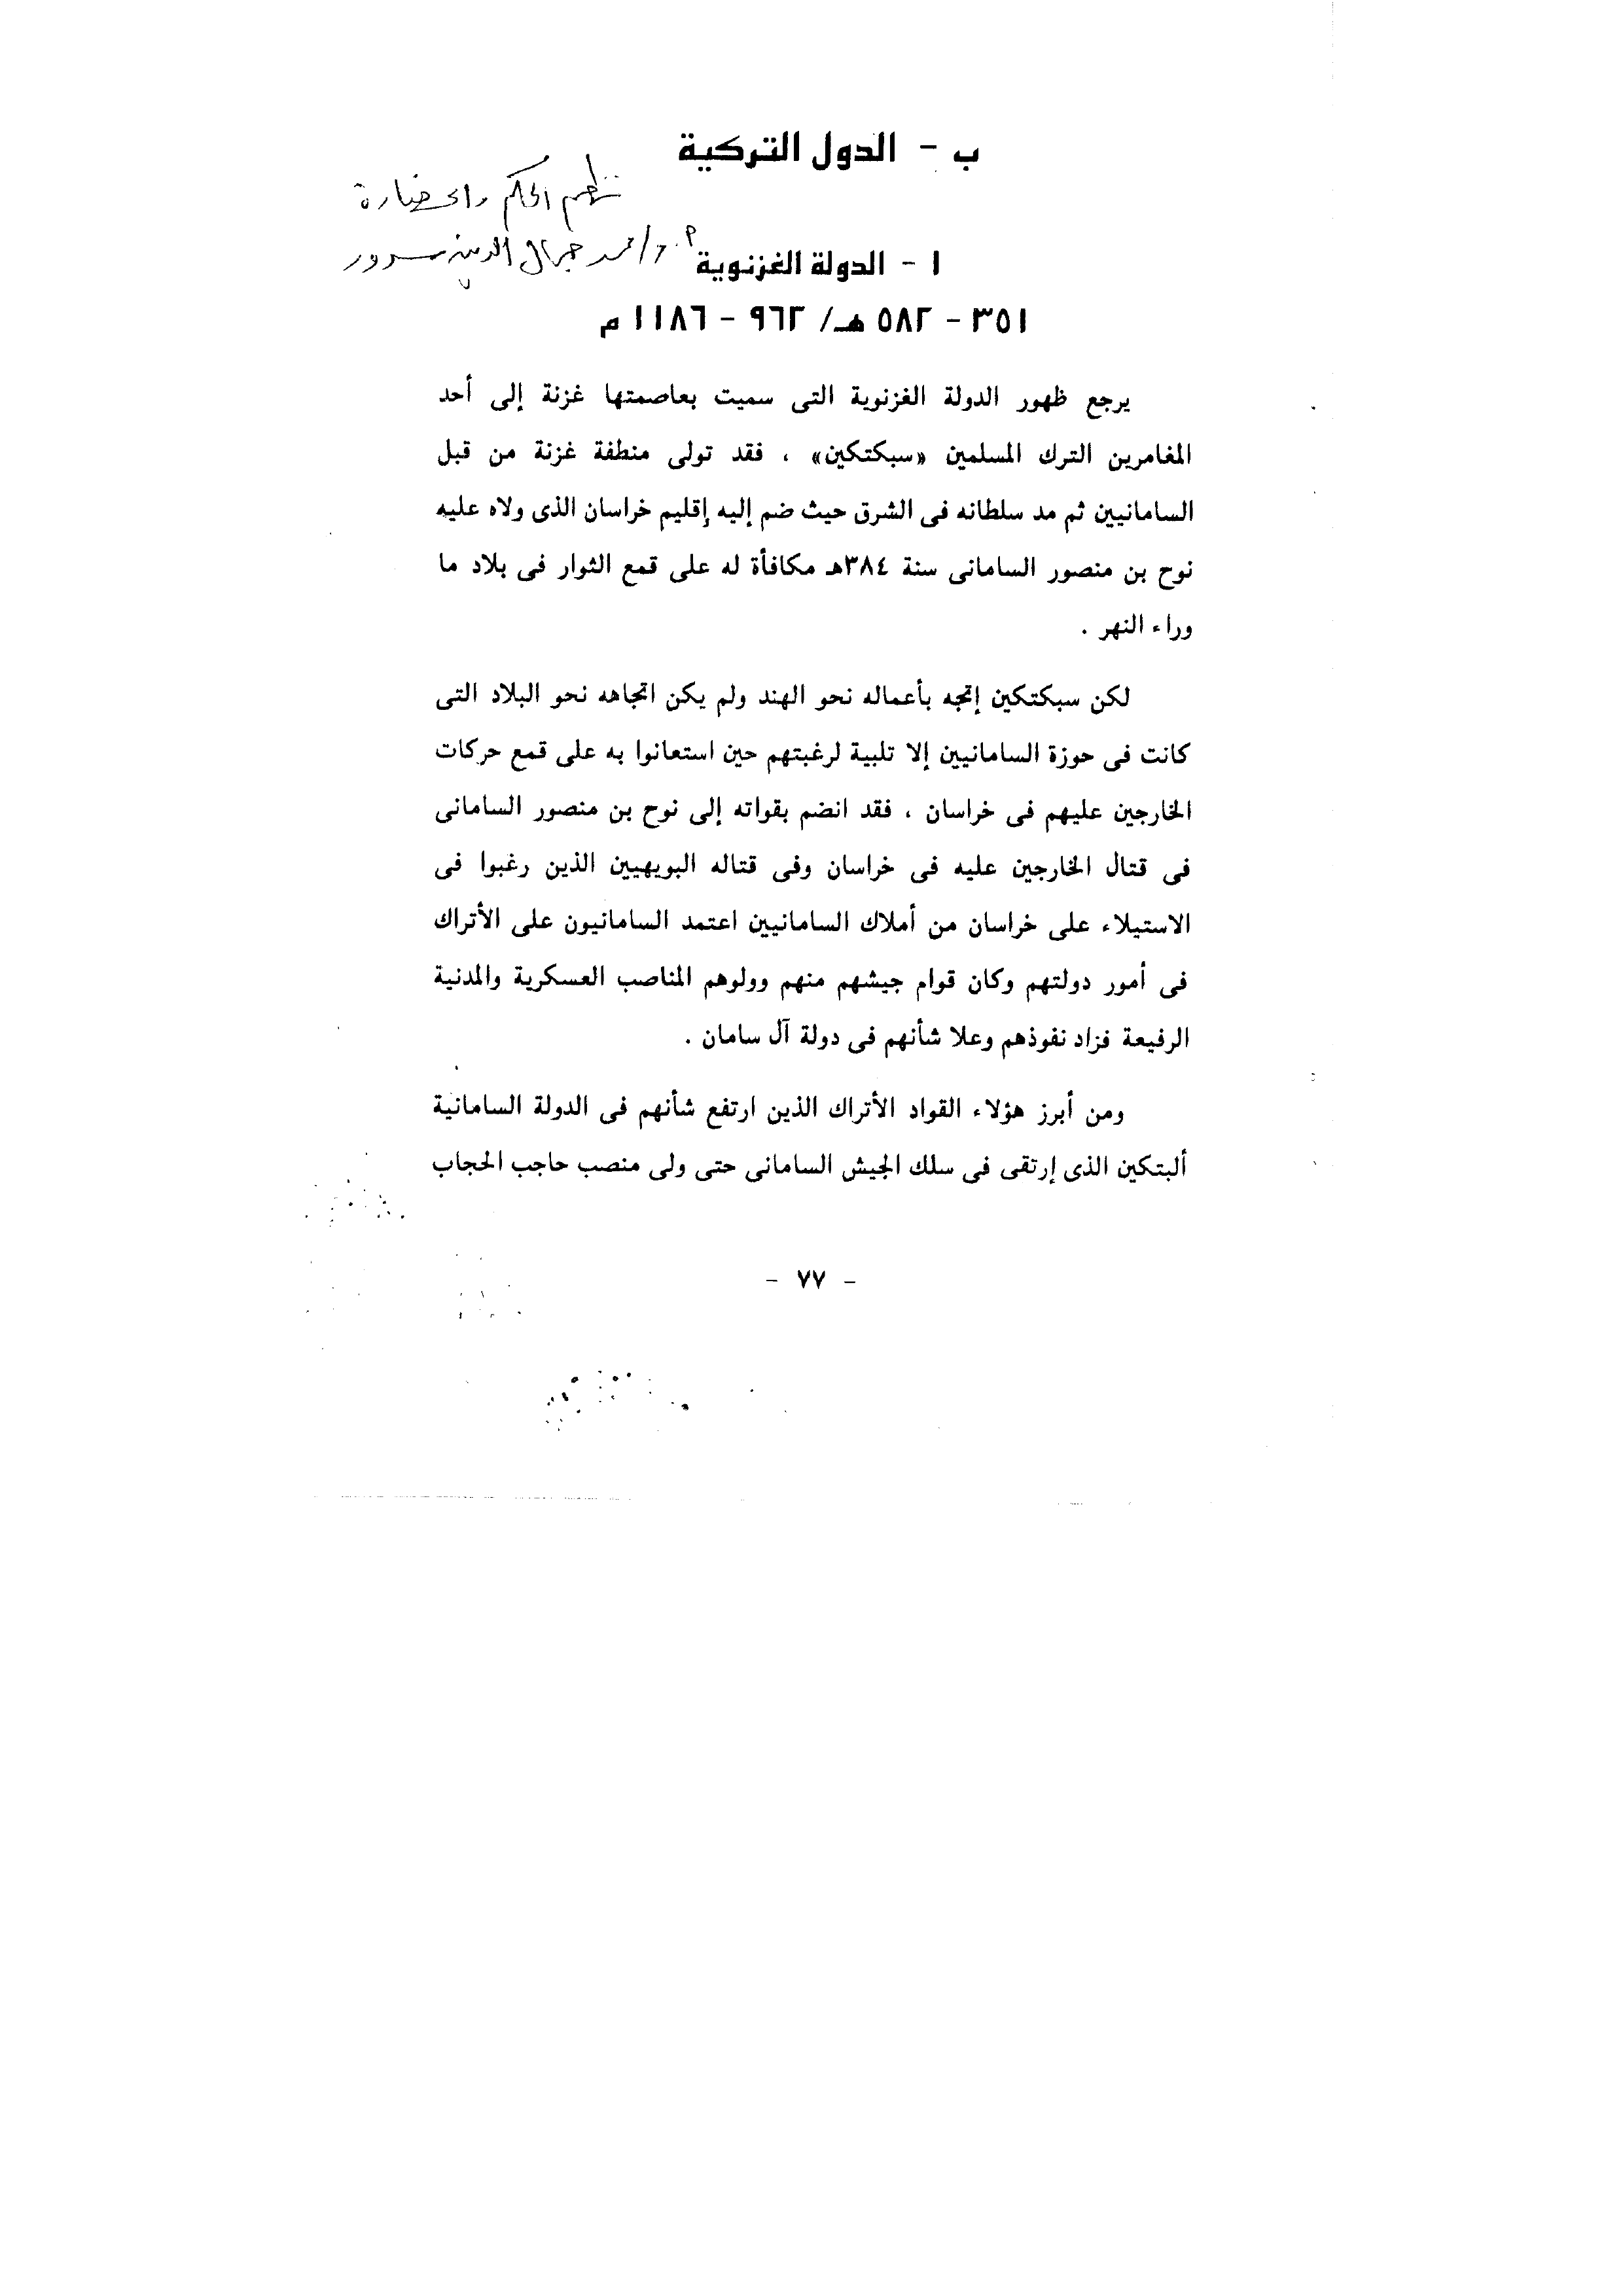 ب - الدول التركية
نظم الحكم والحضارة
أ.د/ محمد جمال الدين سرور
١ - الدولة الغزنوية
٣٥١ - ٥٨٢ هـ/ ٩٦٢ - ١١٨٦ م
يرجع ظهور الدولة الغزنوية التى سميت بعاصمتها غزنة إلى أحد
المغامرين الترك المسلمين «سبكتكين» ، فقد تولى منطفة غزنة من قبل
السامانيين ثم مد سلطانه فى الشرق حيث ضم إليه إقليم خراسان الذى ولاه عليه
نوح بن منصور السامانى سنة ٣٨٤هـ مكافأة له على قمع الثوار فى بلاد ما
وراء النهر .
لكن سبكتكين إتجه بأعماله نحو الهند ولم يكن اتجاهه نحو البلاد التى
كانت فى حوزة السامانيين إلا تلبية لرغبتهم حين استعانوا به على قمع حركات
الخارجين عليهم فى خراسان ، فقد انضم بقواته إلى نوح بن منصور السامانى
فى قتال الخارجين عليه فى خراسان وفى قتاله البويهيين الذين رغبوا فى
الاستيلاء على خراسان من أملاك السامانيين اعتمد السامانيون على الأتراك
فى أمور دولتهم وكان قوام جيشهم منهم وولوهم المناصب العسكرية والمدنية
الرفيعة فزاد نفوذهم وعلا شأنهم فى دولة آل سامان .
ومن أبرز هؤلاء القواد الأتراك الذين ارتفع شأنهم فى الدولة السامانية
ألبتكين الذى إرتقى فى سلك الجيش السامانى حتى ولى منصب حاجب الحجاب
- ٧٧ -